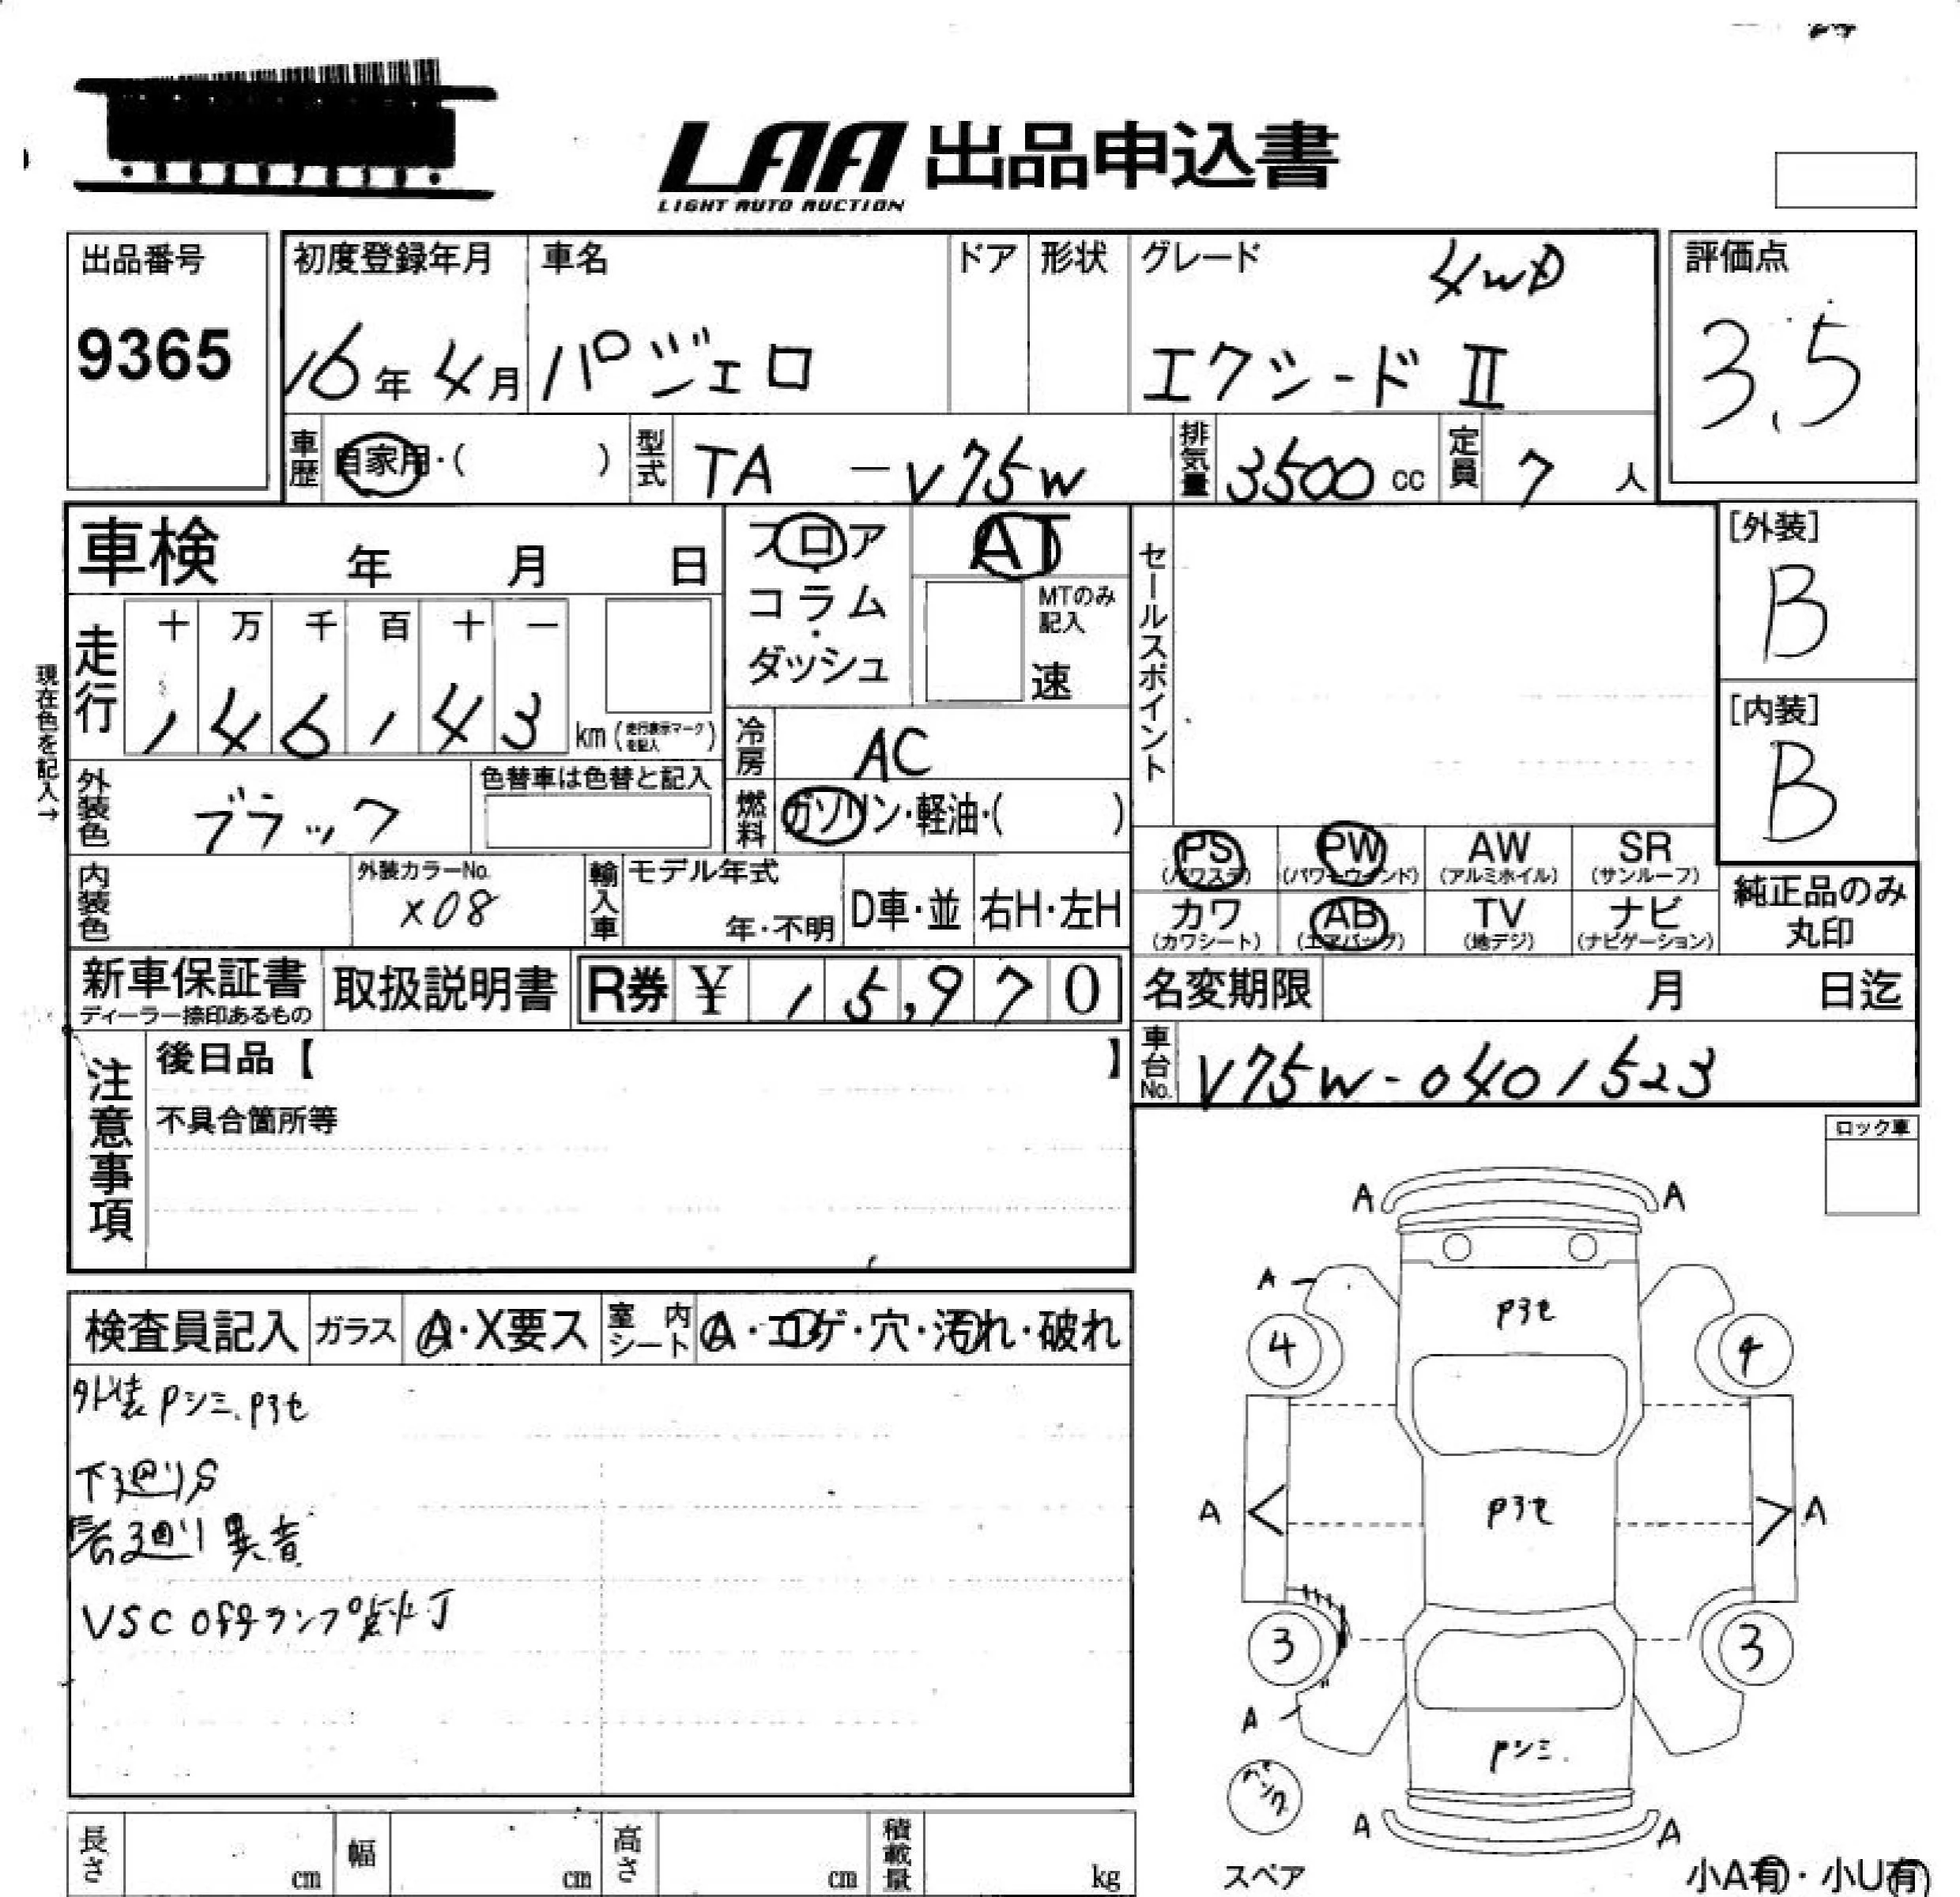 LAA 出品申込書
LIGHT AUTO AUCTION
出品番号
9365
初度登録年月
16年 4月
車名
パジェロ
ドア
形状
グレード
4WD
エクシード II
評価点
3.5
車歴
自家用・( )
型式
TA - V75W
排気量
3500 cc
定員
7 人
車検 年 月 日
フロア
・
コラム
・
ダッシュ
AT
MTのみ
記入
速
セールスポイント
[外装]
B
[内装]
B
現在色を記入→
走行
十 万 千 百 十 一
1 4 6 1 4 3
km (走行表示マークを記入)
冷房
AC
外装色
ブラック
色替車は色替と記入
燃料
ガソリン・軽油・( )
PS
(パワステ)
PW
(パワーウインド)
AW
(アルミホイル)
SR
(サンルーフ)
カワ
(カワシート)
AB
(エアバッグ)
TV
(地デジ)
ナビ
(ナビゲーション)
純正品のみ
丸印
内装色
外装カラーNo.
X08
輸入車
モデル年式
年・不明
D車・並
右H・左H
新車保証書
ディーラー捺印あるもの
取扱説明書
R券 ¥ 15,970
名変期限 月 日迄
車台No.
V75W-0401523
注意事項
後日品【 】
不具合箇所等
ロック車
検査員記入
ガラス
A・X要ス
室内
シート
A・コゲ・穴・汚れ・破れ
外装Pシミ、Pヨセ
下廻りS
廻り異音
VSC offランプ点灯
A A
A
Pヨセ
4 4
A A
Pヨセ
3 3
A
Pシミ
A A
パンク
スペア
小A有・小U有
長さ cm
幅 cm
高さ cm
積載量 kg